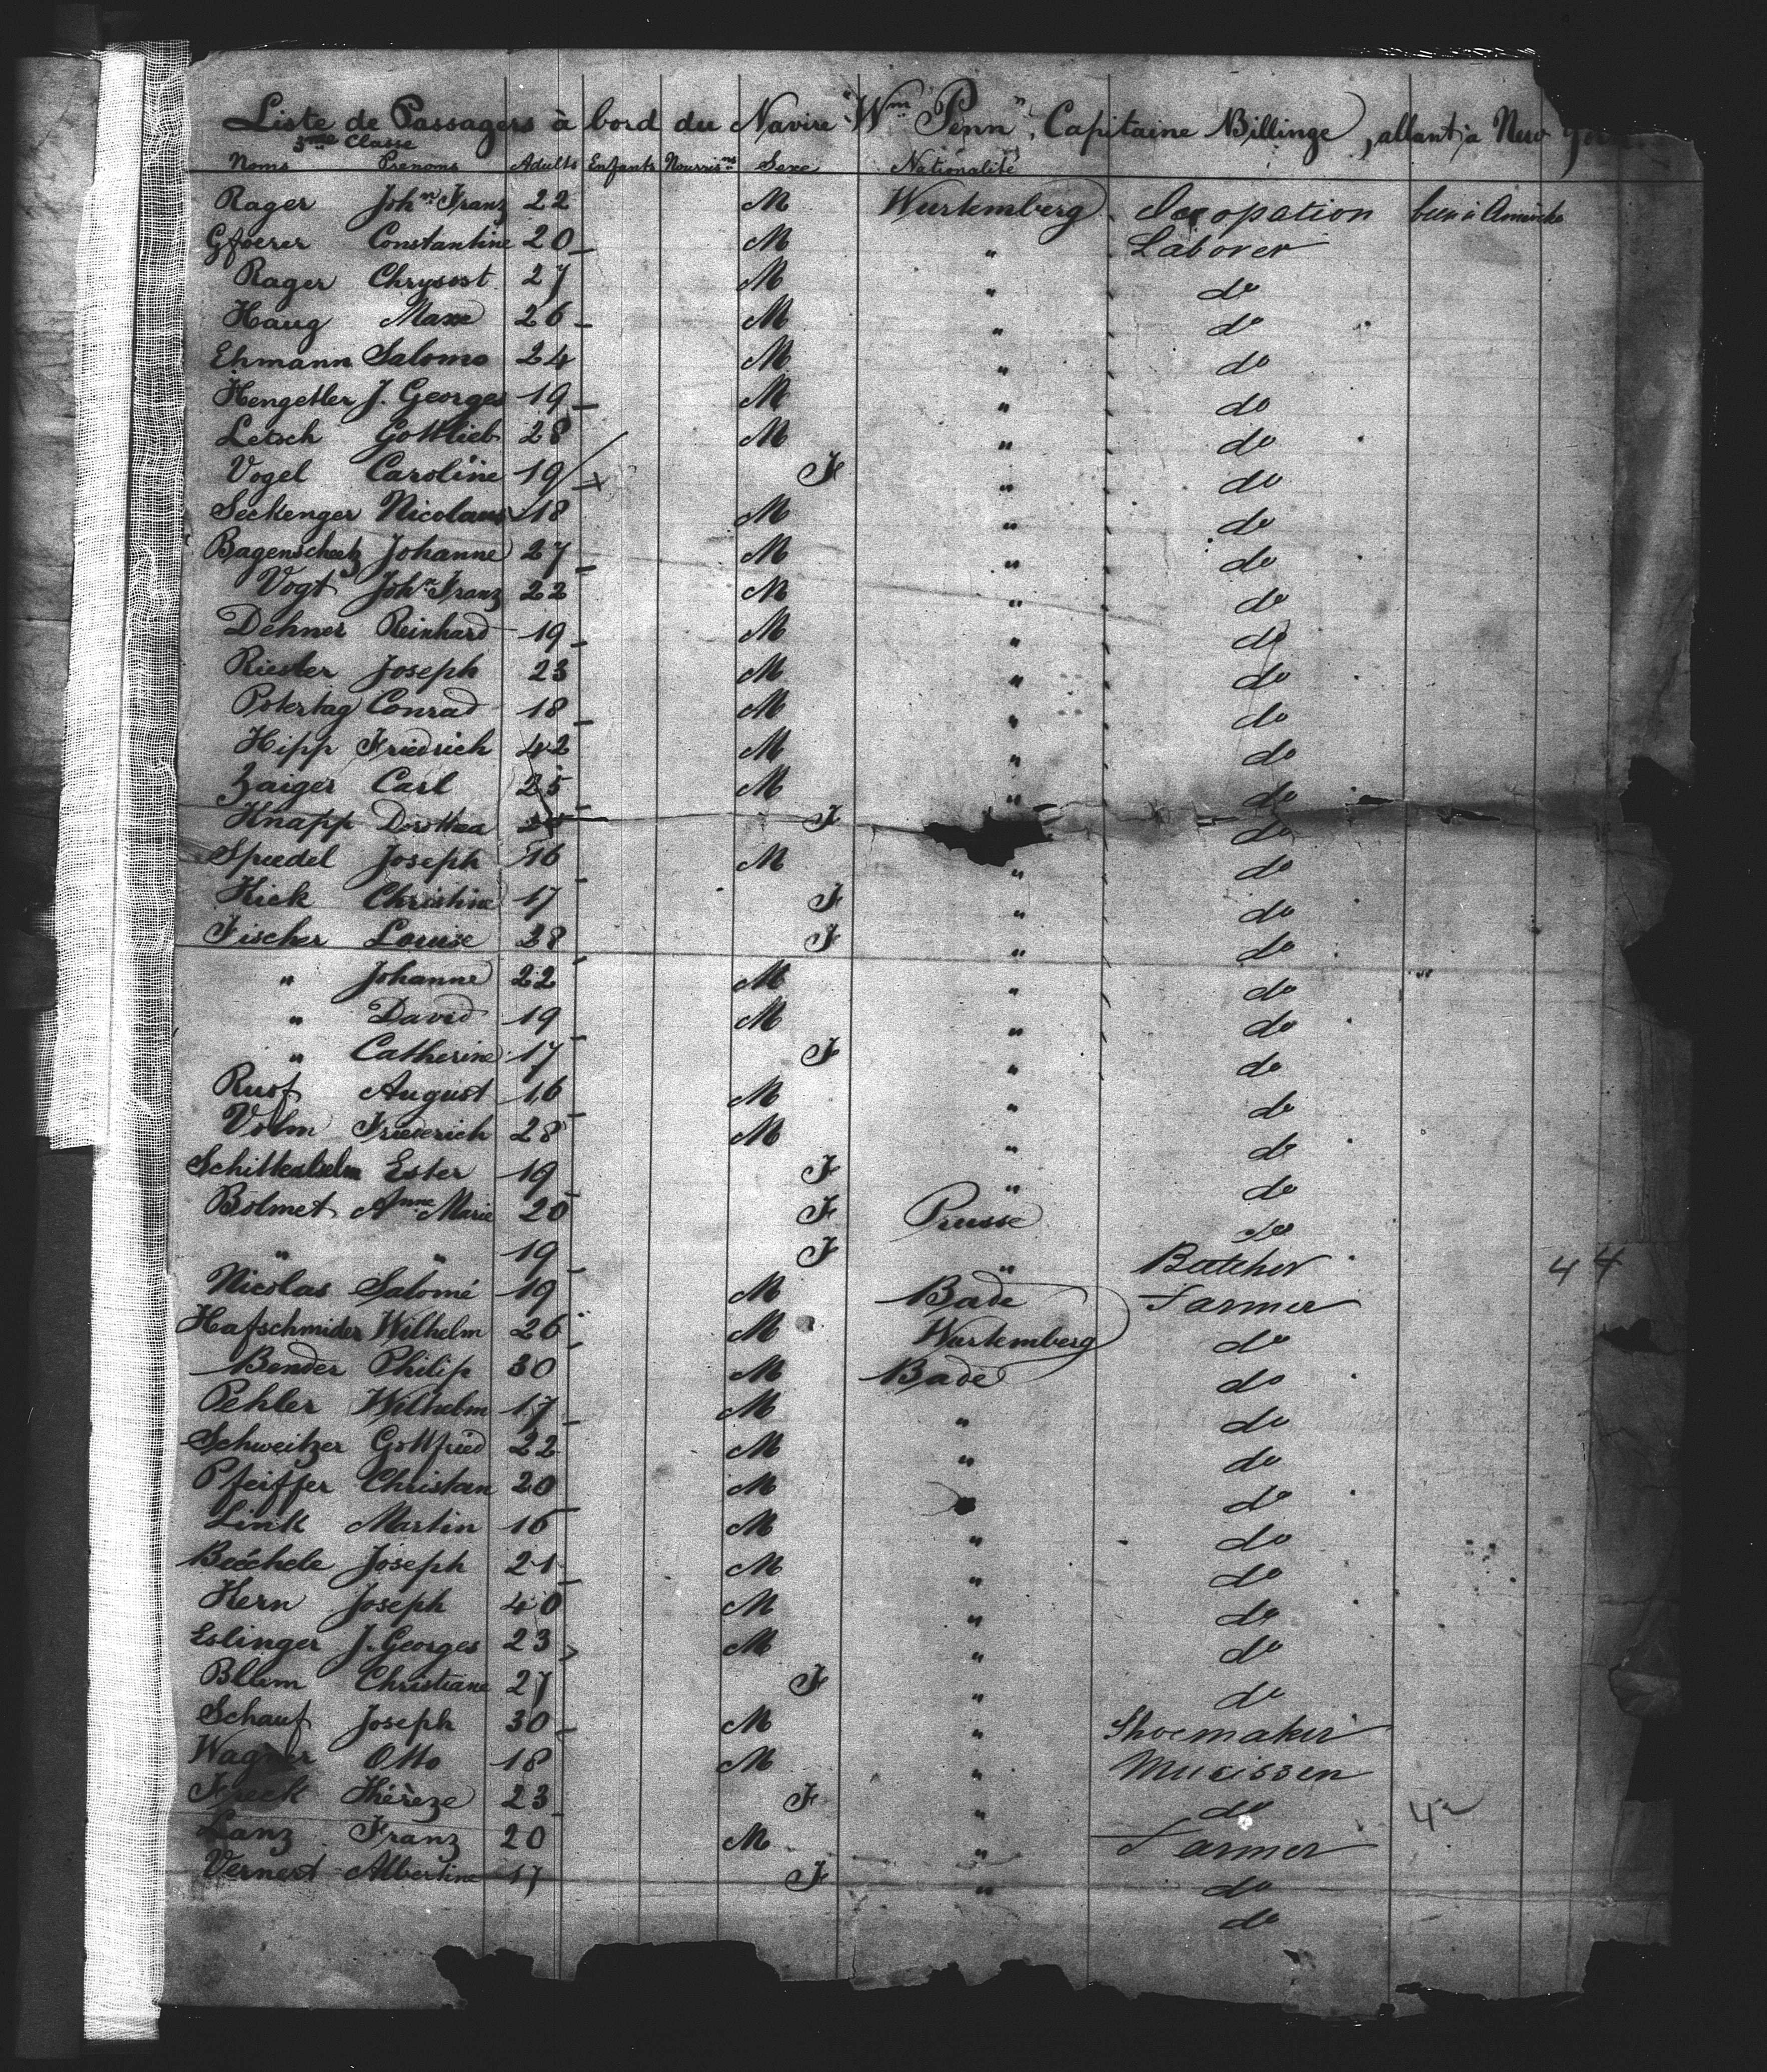 Liste de Passagers à bord du Navire "Wm Penn", Capitaine Billinge, allant à New York
3me Classe
Noms Prenoms Adults Enfants Nourrisns Sexe Nationalité
Rager Johan Franz 22 M Wurtemberg Ocopation been in Americke
Gfoerer Constantine 20 M " Laborer
Rager Chrysost 27 M " do
Haug Maxe 26 M " do
Ehmann Salomo 24 M " do
Hengetler J. Georges 19 M " do
Letsch Gottlieb 28 M " do
Vogel Caroline 19 F " do
Seckenger Nicolaus 18 M " do
Johanne 27 M " do
Vogt Johan Franz 22 M " do
Dehner Reinhard 19 M " do
Riester Joseph 23 M " do
Postertag Conrad 18 M " do
Hipp Friedrich 42 M " do
Zaiger Carl 25 M " do
Knapp Dorothea F do
Speedel Joseph 16 M " do
Kick Christine 17 F " do
Fischer Louise 28 F " do
" Johanne 22 M " do
" David 19 M " do
" Catherine 17 F " do
Ruof August 16 M " do
Volm Friederich 28 M " do
Ester 19 F " do
Bolmet Anne Marie 20 F Prusse do
" " 19 F " Butcher 44
Nicolas Salomé 19 M Bade Farmer
Hafschmider Wilhelm 26 M Wurtemberg do
Bender Philip 30 M Bade do
Pehler Wilhelm 17 M " do
Schweitzer Gottfried 22 M " do
Pfeiffer Christian 20 M " do
Link Martin 16 M " do
Beéchele Joseph 21 M " do
Kern Joseph 40 M " do
Eslinger J. Georges 23 M " do
Bllim Christiane 27 F " do
Schauf Joseph 30 M " Shoemaker
Wagner Otto 18 M " Mucissen
Freck Thérèze 23 F " do 42
Lanz Franz 20 M " Farmer
Vernert Albertine 17 F " do
do